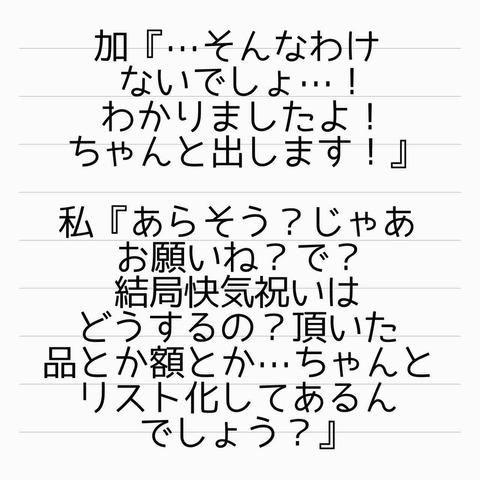 加『…そんなわけ
ないでしょ…！
わかりましたよ！
ちゃんと出します！』
私『あらそう？じゃあ
お願いね？で？
結局快気祝いは
どうするの？頂いた
品とか額とか…ちゃんと
リスト化してあるん
でしょう？』